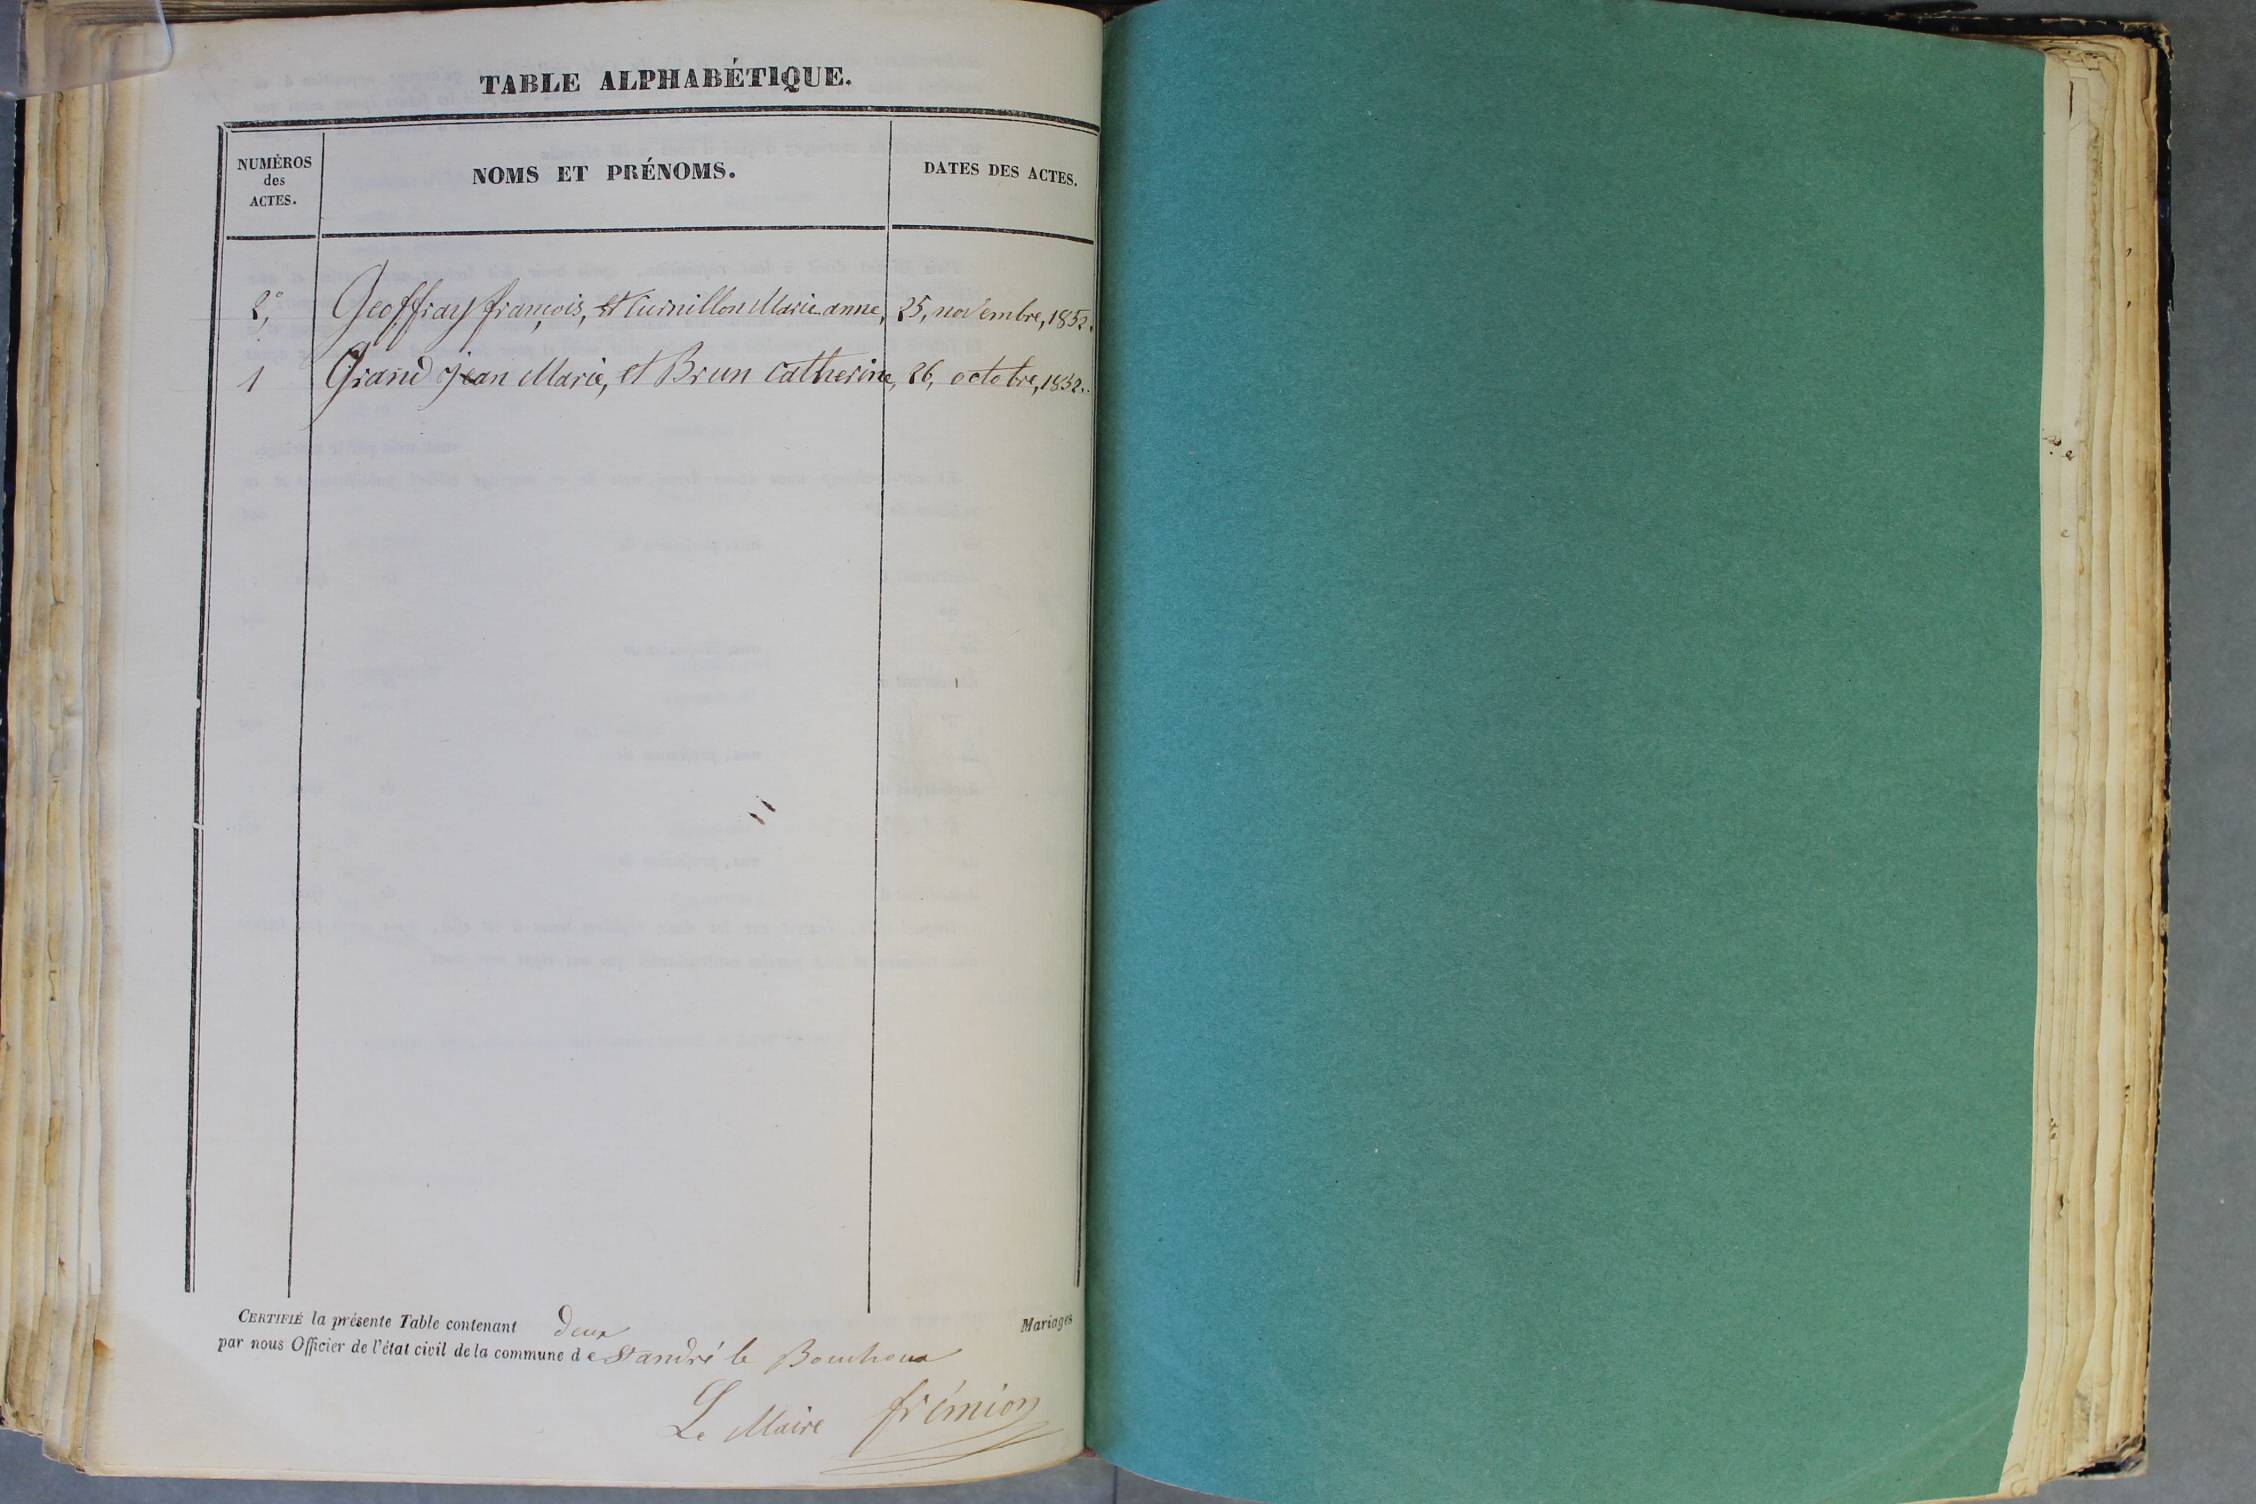 TABLE ALPHABÉTIQUE.
NUMÉROS
des
ACTES.
NOMS ET PRÉNOMS.
DATES DES ACTES.
2° Geoffray françois, et Marie anne, 25, novembre, 1852.
1 Grand jean Marie, et Brun Catherine, 26, octobre, 1852.
CERTIFIÉ la présente Table contenant deux Mariages
par nous Officier de l'état civil de la commune de St andré le Bouchoux
Le Maire frémion